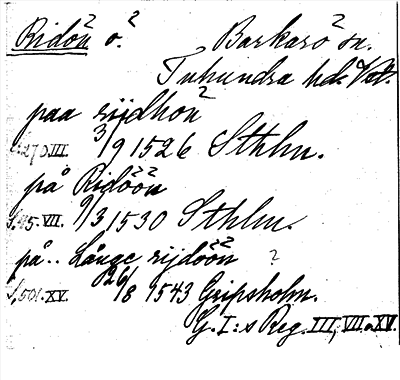 Ridön ö. Barkarö sn.
Tuhundra hd. Vstm.
paa rijdhon
s. 270. III. 3/9 1526 Sthlm.
på Ridöön
s. 45. VII. 9/3 1530 Sthlm.
på.. Långe rijdöön ?
s. 501. XV. 26/8 1543 Gripsholm.
G. I:s Reg. III, VII o. XV.